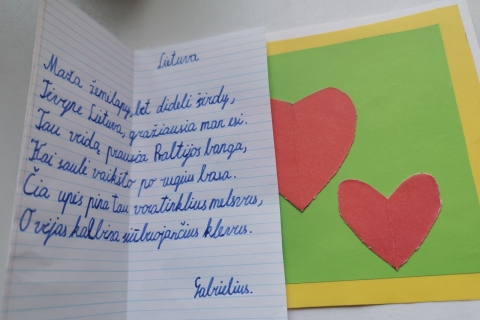 Lietuva
Maža žemėlapy, bet dideli širdy,
Tėvyne Lietuva, gražiausia man esi.
Tau veidą prausia Baltijos banga,
Kai saulė vaikšto po rugius basa.
Čia upės pina tau voratinklius melsvus,
O vėjas kalbina siūbuojančius klevus.
Gabrielius.